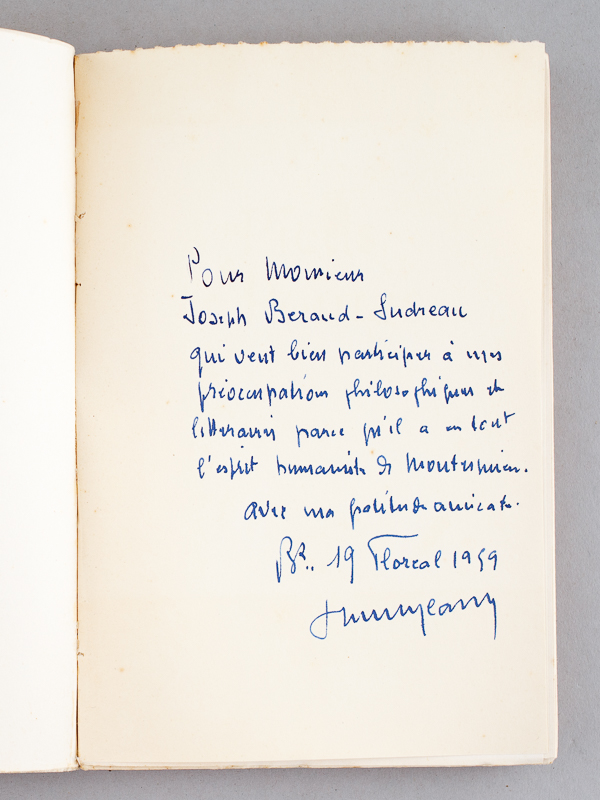 Pour Monsieur
Joseph Beraud-Sudreau
qui veut bien participer à mes
préoccupations philosophiques et
litteraires parce qu'il a en tout
l'esprit humaniste de Montesquieu.
avec ma gratitude amicale.
Bx.. 19 Floreal 1959